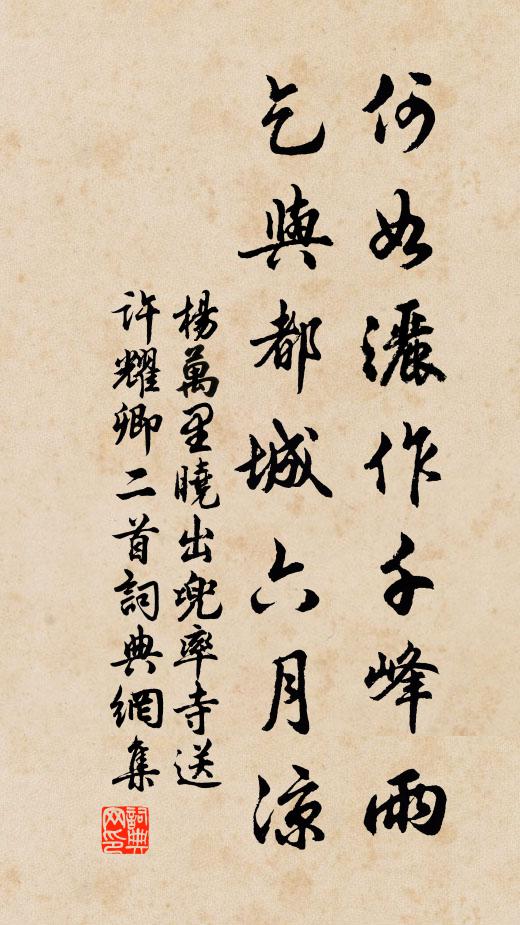 何如灑作千峰雨
乞與都城六月涼
楊萬里曉出兜率寺送
許耀卿二首詞典網集
詞典网印